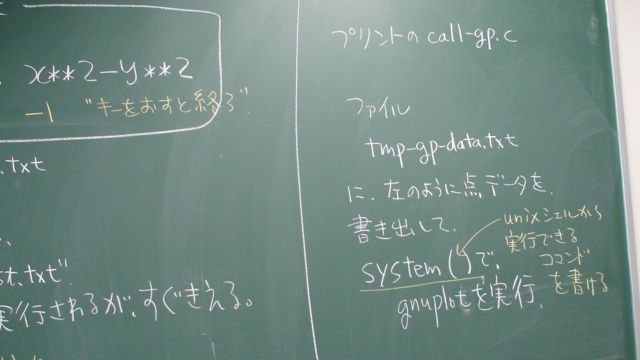 x**2-y**2
-1 "キーをおすと終る"
.txt
st.txt"
実行されるが、すぐきえる。
プリントの call-gp.c
ファイル
tmp-gp-data.txt
に、左のように点データを、
書き出して、
system()で、
gnuplotを実行、
unixシェルから
実行できる
コマンド
を書ける